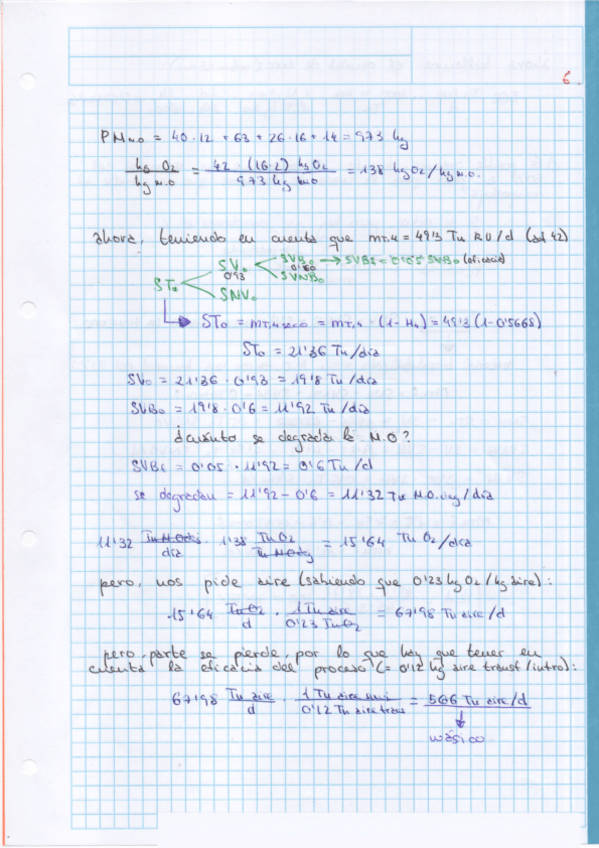 6
PM m.o = 40·12 + 63 + 26·16 + 14 = 973 kg
kg O2 / kg m.o = 42·(16·2) kg O2 / 973 kg m.o = 1'38 kg O2/kg m.o.
ahora, teniendo en cuenta que mT,4 = 49'3 Tn RU/d (ad 42)
STo SVo 0'93 SVBo 0'60 → SVBf = 0'05 SVBo (eficacia)
SNVo SVNBo
STo = mT,4 seco = mT,4 · (1-H4) = 49'3 (1-0'5668)
STo = 21'36 Tn/día
SVo = 21'36 · 0'93 = 19'8 Tn/día
SVBo = 19'8 · 0'6 = 11'92 Tn/día
¿cuánto se degrada la M.O?
SVBf = 0'05 · 11'92 = 0'6 Tn/d
se degradan = 11'92 - 0'6 = 11'32 Tn M.O. deg/día
11'32 Tn M.O deg / día · 1'38 Tn O2 / Tn M.O deg = 15'64 Tn O2/día
pero, nos pide aire (sabiendo que 0'23 kg O2/kg aire):
15'64 Tn O2 / d · 1 Tn aire / 0'23 Tn O2 = 67'98 Tn aire/d
pero, parte se pierde, por lo que hay que tener en
cuenta la eficacia del proceso (= 0'12 kg aire transf/intro):
67'98 Tn aire / d · 1 Tn aire sumi / 0'12 Tn aire trans = 566 Tn aire/d
másico